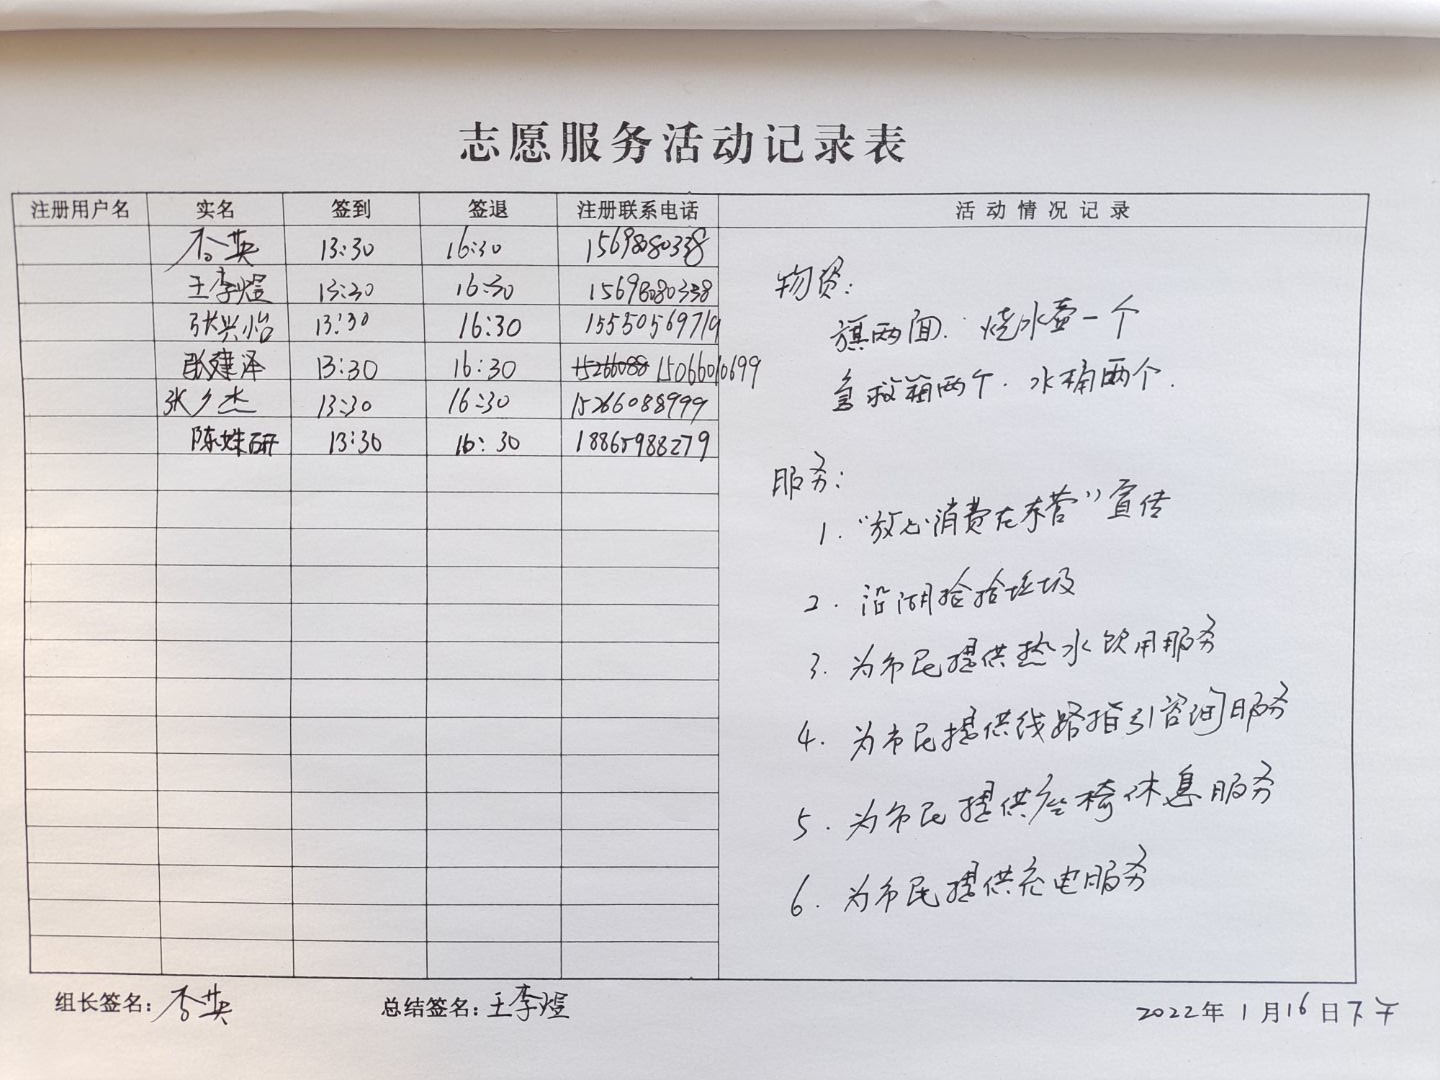 志愿服务活动记录表
注册用户名 实名 签到 签退 注册联系电话 活动情况记录
李英 13:30 16:30 15698080338
王李煊 13:30 16:30 15698080338
张兴怡 13:30 16:30 15550569719
13:30 16:30 15266088 15066010699
张夕杰 13:30 16:30 15266088999
陈姝研 13:30 16:30 18865988279
物资:
旗两面. 烧水壶一个
急救箱两个. 水桶两个.
服务:
1. “放心消费在东营”宣传
2. 沿湖捡拾垃圾
3. 为市民提供热水饮用服务
4. 为市民提供线路指引咨询服务
5. 为市民提供座椅休息服务
6. 为市民提供充电服务
组长签名: 李英 总结签名: 王李煊 2022年1月16日下午